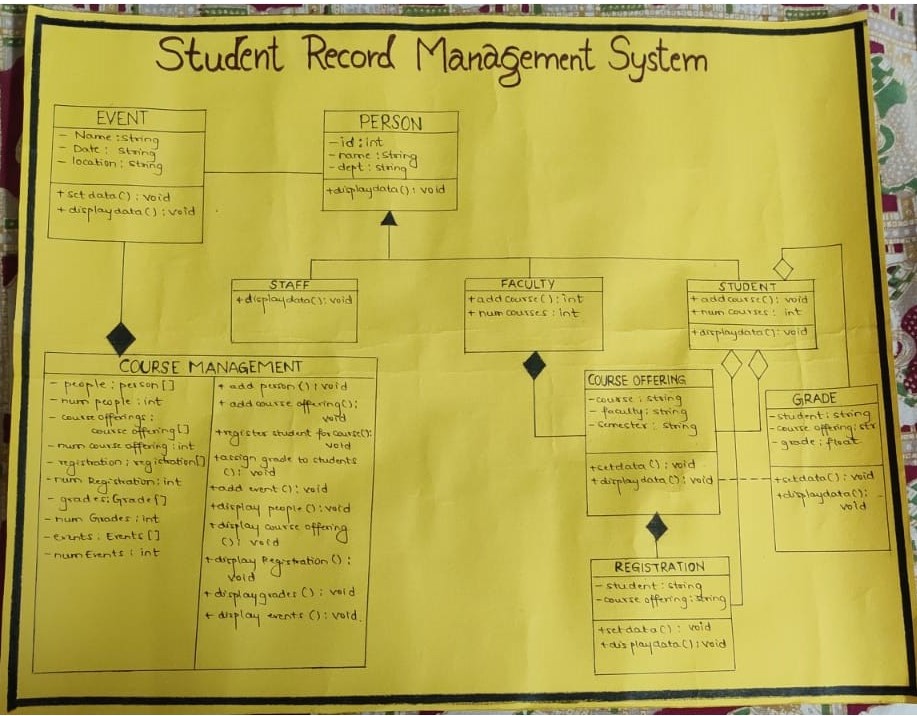 Student Record Management System
EVENT
- Name : string
- Date : string
- location : string
+ setdata() : void
+ displaydata() : void
PERSON
- id : int
- name : string
- dept : string
+displaydata() : void
STAFF
+ displaydata() : void
FACULTY
+ addcourse() : int
+ numcourses : int
STUDENT
+ addcourse() : void
+ numcourses : int
+displaydata() : void
COURSE MANAGEMENT
- people : person[]
- num people : int
- course offerings :
course offering[]
- num course offering : int
- registration : registration[]
- num Registration : int
- grades : Grade[]
- num Grades : int
- events : Events[]
- numEvents : int
+ add person() : void
+ add course offering() :
void
+register student for course() :
void
+assign grade to students
() : void
+add event() : void
+display people() : void
+display course offering
() : void
+display Registration() :
void
+ display grades() : void
+ display events() : void.
COURSE OFFERING
- course : string
- faculty : string
- semester : string
+setdata() : void
+ displaydata() : void
GRADE
- student : string
- course offering : str
- grade : float
: void
+displaydata() :
void
REGISTRATION
- student : string
- course offering : string
+setdata() : void
+displaydata() : void